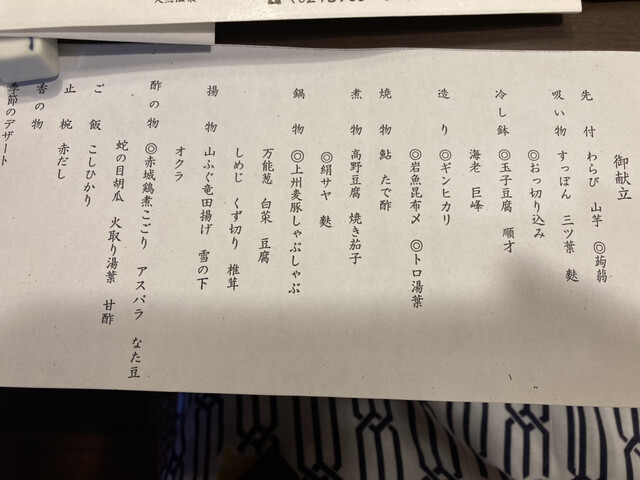 御献立
先付 わらび 山芋 ◎蒟蒻
吸い物 すっぽん 三ツ葉 麩
◎おっ切り込み
冷し鉢 ◎玉子豆腐 順才
海老 巨峰
造り ◎ギンヒカリ
◎岩魚昆布〆 ◎トロ湯葉
焼物 鮎 たで酢
煮物 高野豆腐 焼き茄子
◎絹サヤ 麩
鍋物 ◎上州麦豚しゃぶしゃぶ
万能葱 白菜 豆腐
しめじ くず切り 椎茸
揚物 山ふぐ竜田揚げ 雪の下
オクラ
酢の物 ◎赤城鶏煮こごり アスパラ なた豆
蛇の目胡瓜 火取り湯葉 甘酢
ご飯 こしひかり
止椀 赤だし
香の物
季節のデザート